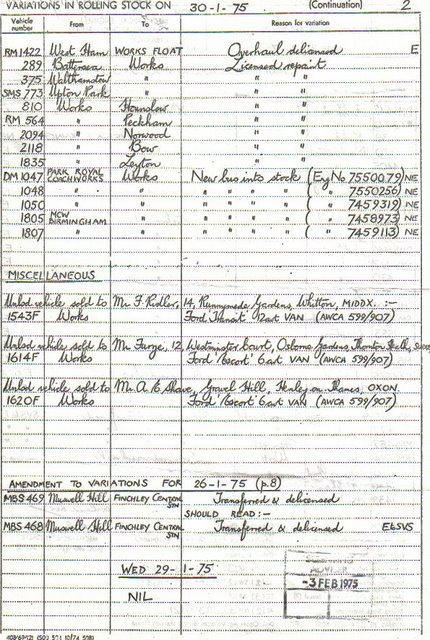 VARIATIONS IN ROLLING STOCK ON 30-1-75 (Continuation) 2
Vehicle number From To Reason for variation
RM 1422 West Ham WORKS FLOAT Overhaul delicensed E
289 Battersea Works Licensed repaint
375 Walthamstow " " "
SMS 773 Upton Park " " "
810 Works Hounslow " "
RM 564 " Peckham " "
2094 " Norwood " "
2118 " Bow " "
1835 " Leyton " "
DM 1047 PARK ROYAL COACHWORKS Works New bus into stock (Eng No 7550079) NE
1048 " " " " " " ( " " 7550256) NE
1050 " " " " " " ( " " 7459319) NE
1805 MCW BIRMINGHAM " " " " " ( " " 7458973) NE
1807 " " " " " " ( " " 7459113) NE
MISCELLANEOUS
Unlsd vehicle sold to Mr F. Ridler, 14, Runnymede Gardens, Whitton, MIDDX. :-
1543F Works Ford 'Transit' 12cwt VAN (AWCA 599/907)
Unlsd vehicle sold to Mr Furge, 12, Westminster Court, Gardens, Thornton Heath,
1614F Works Ford 'Escort' 6cwt VAN (AWCA 599/907)
Unlsd vehicle sold to Mr. A E Shave, Gravel Hill, Henley on Thames, OXON.
1620F Works Ford 'Escort' 6cwt VAN (AWCA 599/907)
AMENDMENT TO VARIATIONS FOR 26-1-75 (p.8)
MBS 469 Muswell Hill FINCHLEY CENTRAL STN Transferred & delicensed
SHOULD READ:-
MBS 468 Muswell Hill FINCHLEY CENTRAL STN Transferred & delicensed
WED 29-1-75
NIL
-3 FEB 1975